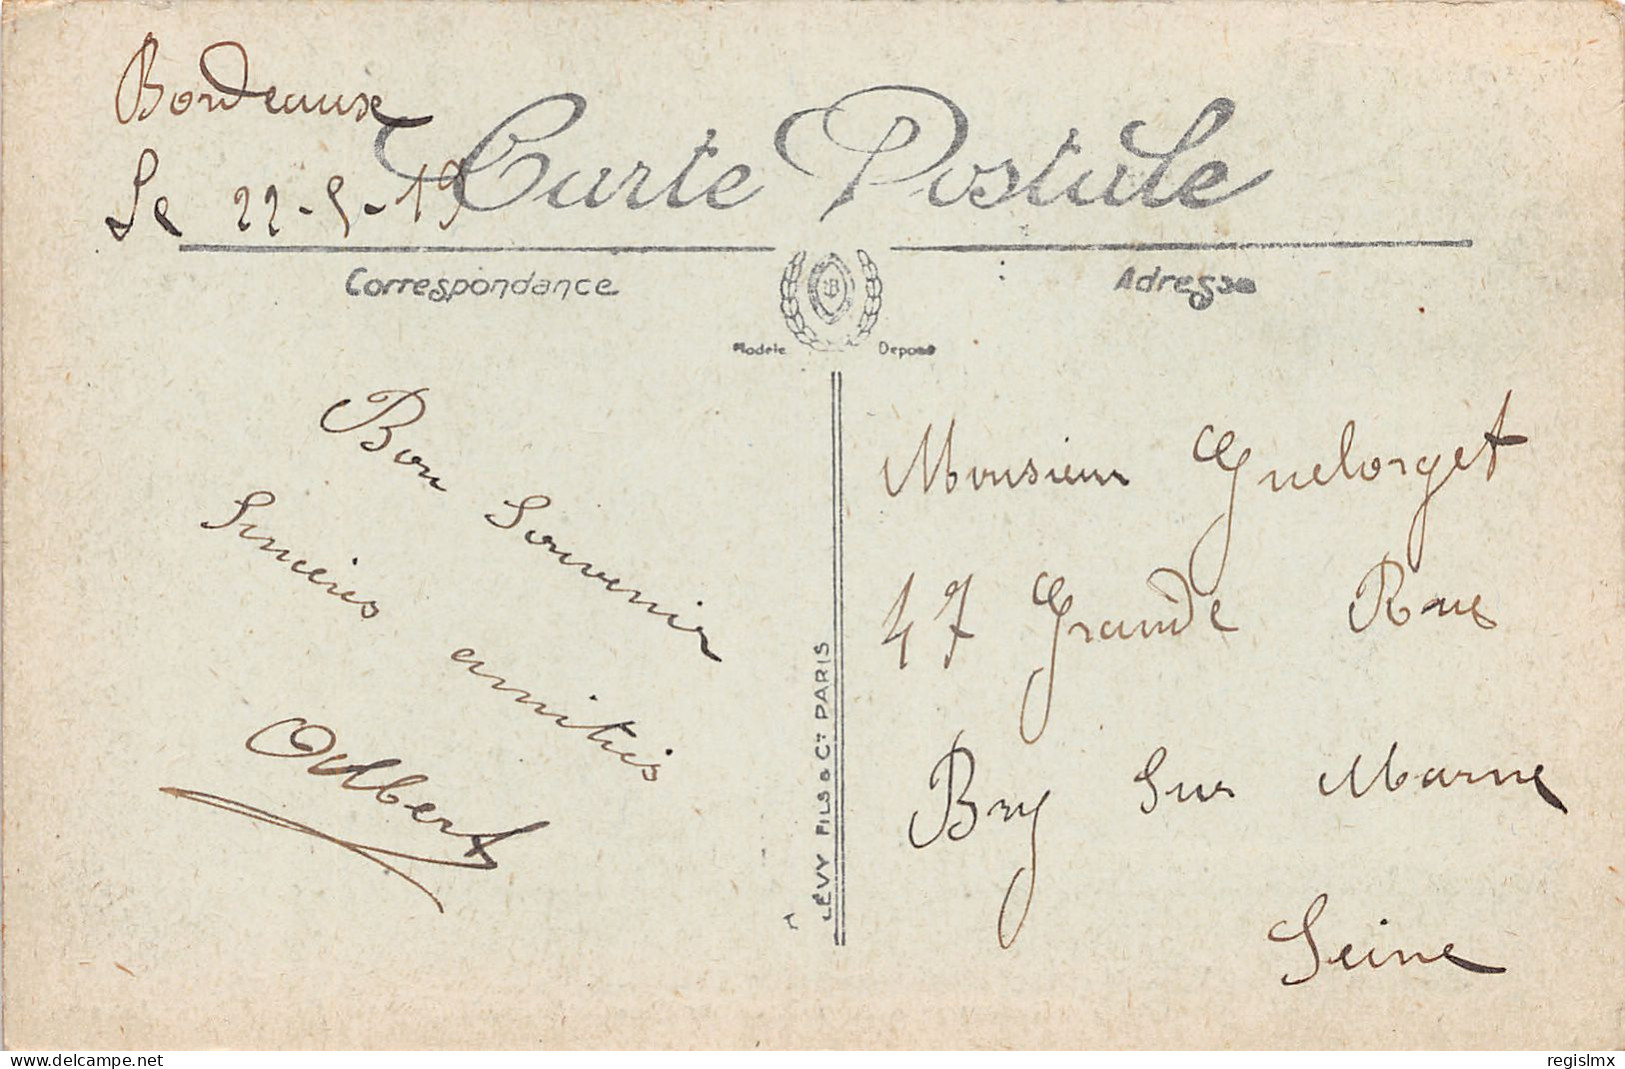 Bordeaux
Le 22-5-19
Carte Postale
Correspondance
Adresse
Modèle Déposé
Bon Souvenir
Sincères amitiés
Albert
LÉVY FILS & Cie PARIS
Monsieur Guelorget
47 Grande Rue
Bry Sur Marne
Seine
www.delcampe.net
regislmx